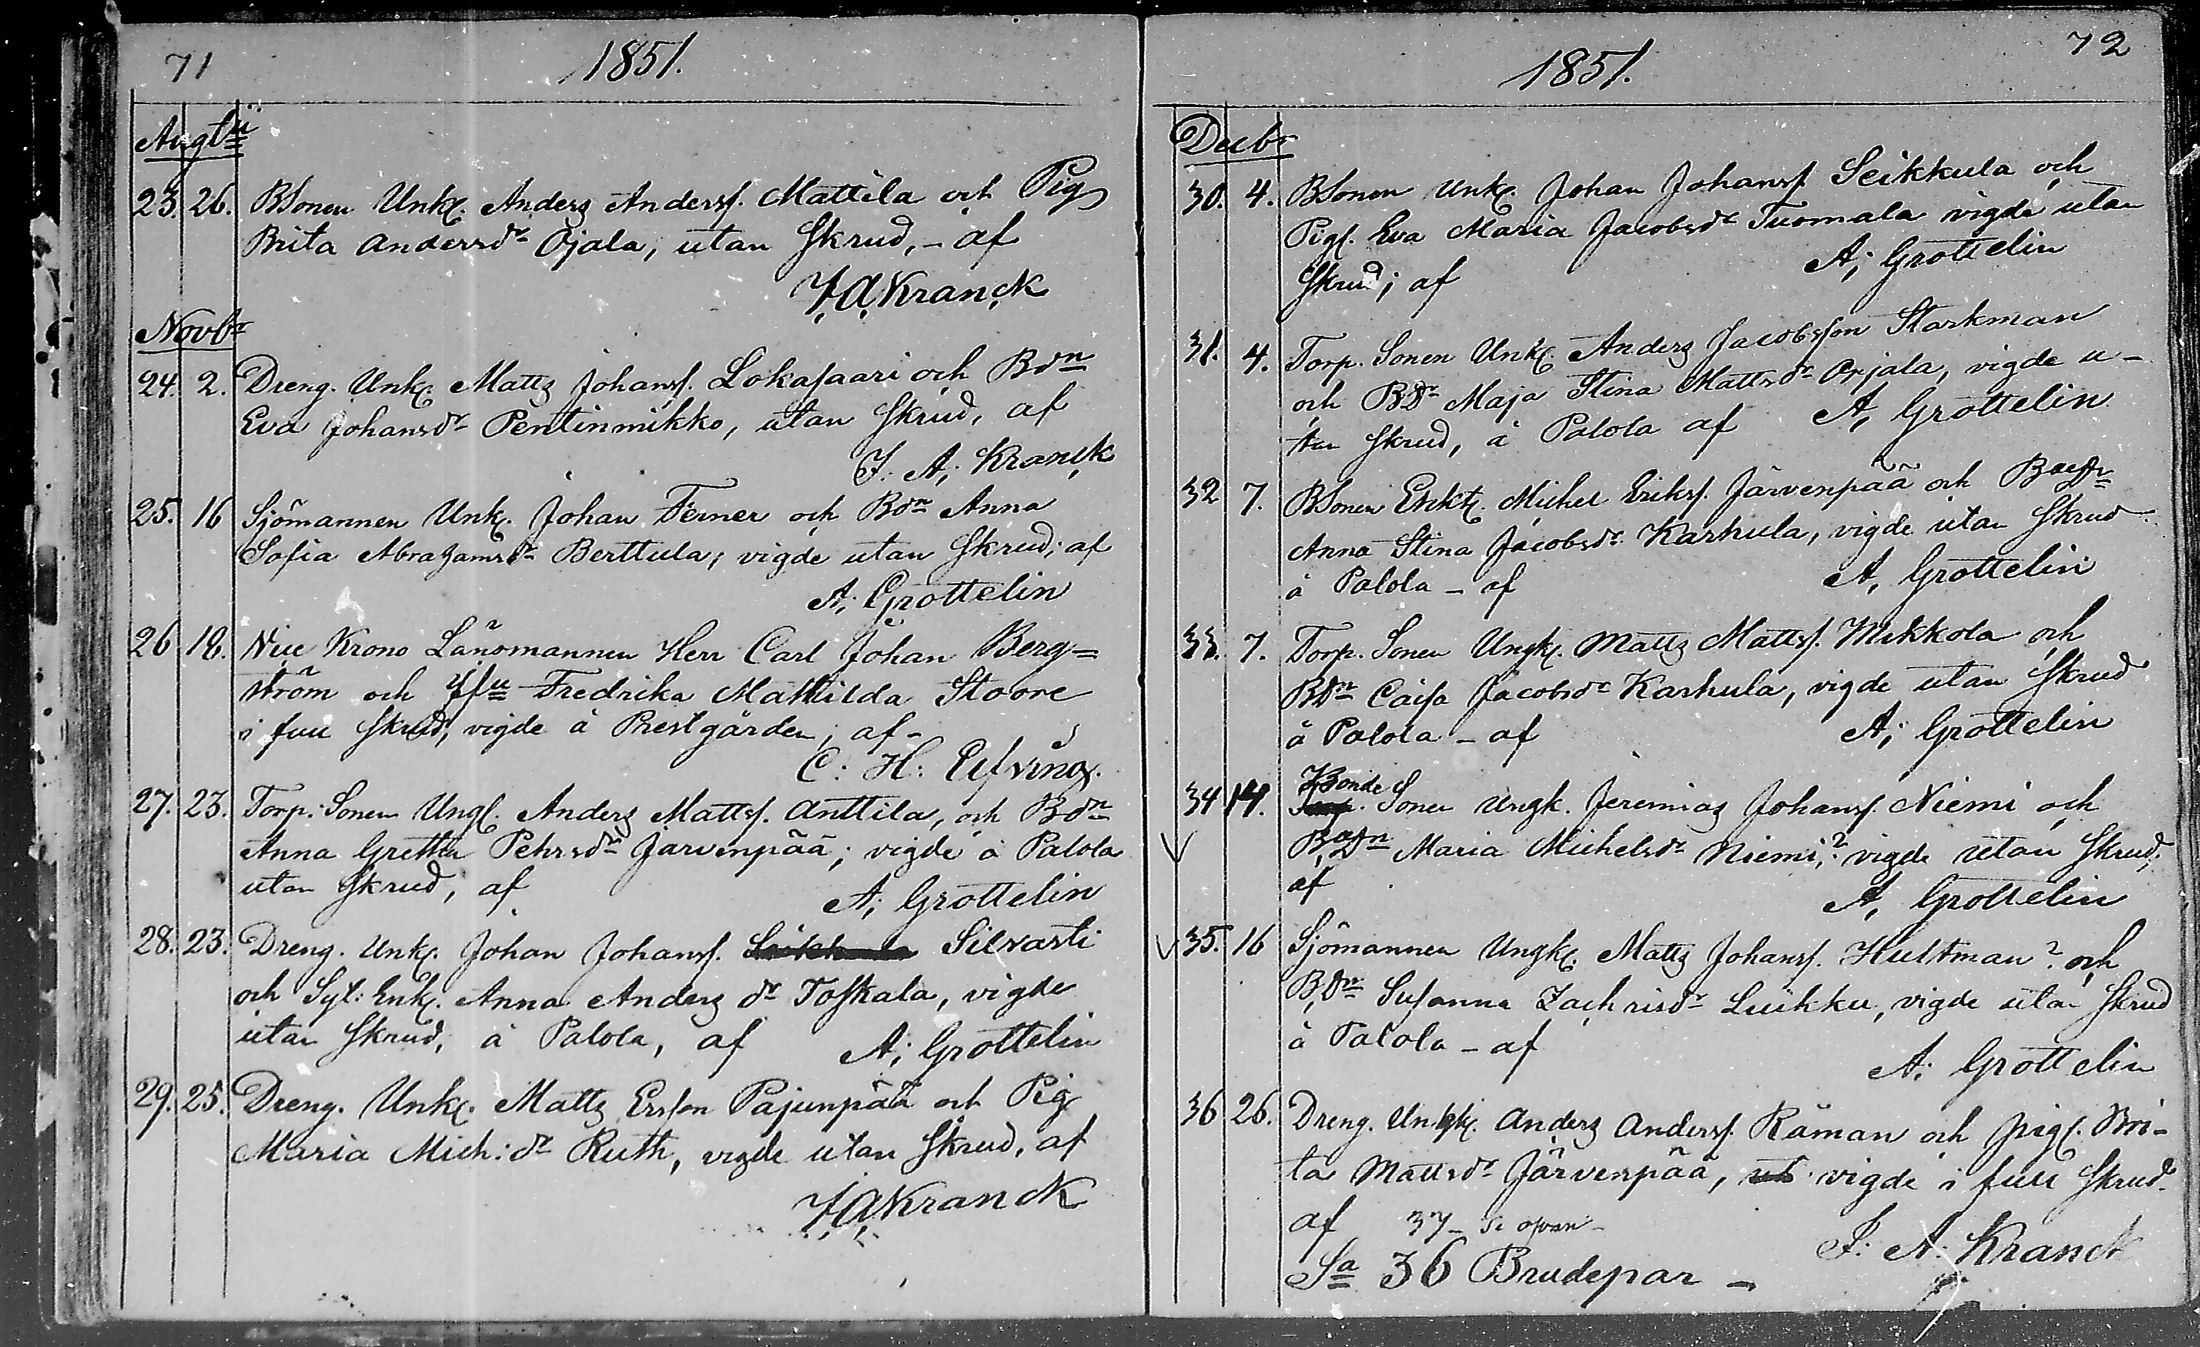 71
1851.
Augti
23. 26. BSonen Unkl. Anders Anderss. Mattila och Pig
Brita Andersdr Ojala, utan Skrud, – af
J. A. Kranck
Novbr
24. 2. Dreng. Unkl. Matts Johanss. Lokasaari och Bdn
Eva Johansdr Pentinmikko, utan Skrud, af
J. A. Kranck
25. 16 Sjömannen Unk. Johan Ferner och Bdn Anna
Sofia Abrahamsdr Berttula, vigde utan Skrud; af
A. Grottelin
26 18. Vice Krono Länsmannen Herr Carl Johan Berg=
ström och Jfu Fredrika Mathilda Stoore
i full Skrud, vigde å Prestgården, af –
C: H:
27. 23. Torp. Sonen Ungl. Anders Mattss. Anttila, och Bdn
Anna Gretha Pehrsdr Järvenpää; vigde å Palola
utan Skrud, af
A. Grottelin
28. 23. Dreng. Unkl. Johan Johanss. Seikkula Silvasti
och Syt: Enk. Anna Anders dr Toskala, vigde
utan Skrud, å Palola, af A. Grottelin
29. 25. Dreng. Unkl. Matts Ersson Pajunpää och Pig
Maria Mich: dr Ruth, vigde utan Skrud, af
J. A. Kranck
72
1851.
Decbr
30. 4. BSonen Unkl. Johan Johanss. Seikkula och
Pigl. Eva Maria Jacobsdr Tuomala vigde utan
Skrud; af A. Grottelin
31. 4. Torp. Sonen Unkl. Anders Jacobsson Starkman
och BDr Maja Stina Mattsdr Orjala, vigde u–
tan Skrud, å Palola af A. Grottelin
32 7. BSonen Enkl. Michel Erikss. Järvenpää och
Anna Stina Jacobsdr Karhula, vigde utan Skrud
å Palola – af A. Grottelin
33. 7. Torp. Sonen Ungk. Matts Mattss. Mikkola och
BDn Caisa Jacobsdr Karhula, vigde utan Skrud
å Palola – af A. Grottelin
34 14. Bonde Torp. Sonen Ungk. Jeremias Johanss. Niemi och
Maria Michelsdr Niemi,? vigde utan Skrud;
af A. Grottelin
35. 16 Sjömannen Ungk. Matts Johanss. Hultman? och
BDn Susanna Zachrisdr Luikku, vigde utan Skrud
å Palola – af
A. Grottelin
36 26. Dreng. Ungk. Anders Anderss. Råman och pigl. Bri–
ta Mattsdr Järvenpää, ut vigde i full Skrud
af 37 – se ofvan –
J. A. Kranck
Sa 36 Brudepar –